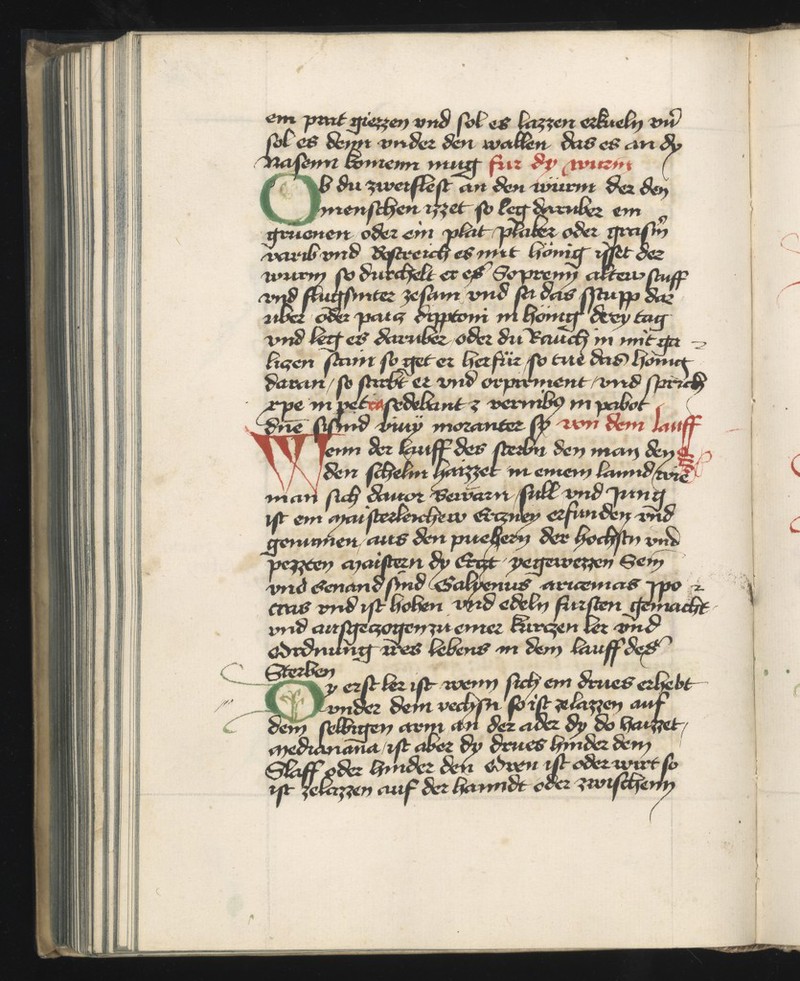 ein prait giezzen vnd sol es lazzen erkueln vn̄
sol es denn vnder den wallen das es an dy
Nasenn komenn mug fur dy wurm
Ob du zweiflest an den wurm der den
menschen izzet so leg daruber ein
gruenen oder ein plat plaber oder grasin̄
varib vnd bestreich es mit hönig isset der
wurm so durchelt er es So prenn alten
vnd slugsmter zesam vnd sä das stupp dar
uber oder paiz dipptom in hönig drey tag
vnd leg es daruber oder du Rauch in mit ga
lizen stain so get er herfür so tue das hönig
daran so starbt er vnd orpiment vnd sprich
xpe in petra sedebant z vermibꝫ in pabot
dn̄e moranter sy von dem lauff
Wenn der lauff des sterbn den man den
den schelm haizzet in einem lannd wie
man sich dauor bewarn sull vnd Jung
ist ein maisterleichew Erczney erfunden vnd
genumen aus den puehern der hochstn vnd
pezzten maistern dy Erczt yegewezzen Sein
vnd Genand sind Galyenus auicennas Ipo
cras vnd ist hohen vnd edeln fursten gemacht
vnd ausgeczogen zu einer kurczen ler vnd
Ordnung irs lebens in dem lauff des
Sterben
Dy erst ler ist wenn sich ein drues erhebt
vnder dem vechsn so ist zelazzen auf
dem selbigen arm an der ader dy do haizzet
medianana ist aber dy drues hinder dem
Slaff oder hinder den Oren ist oder wirt so
ist zelazzen auf der hanndt oder zwischenn